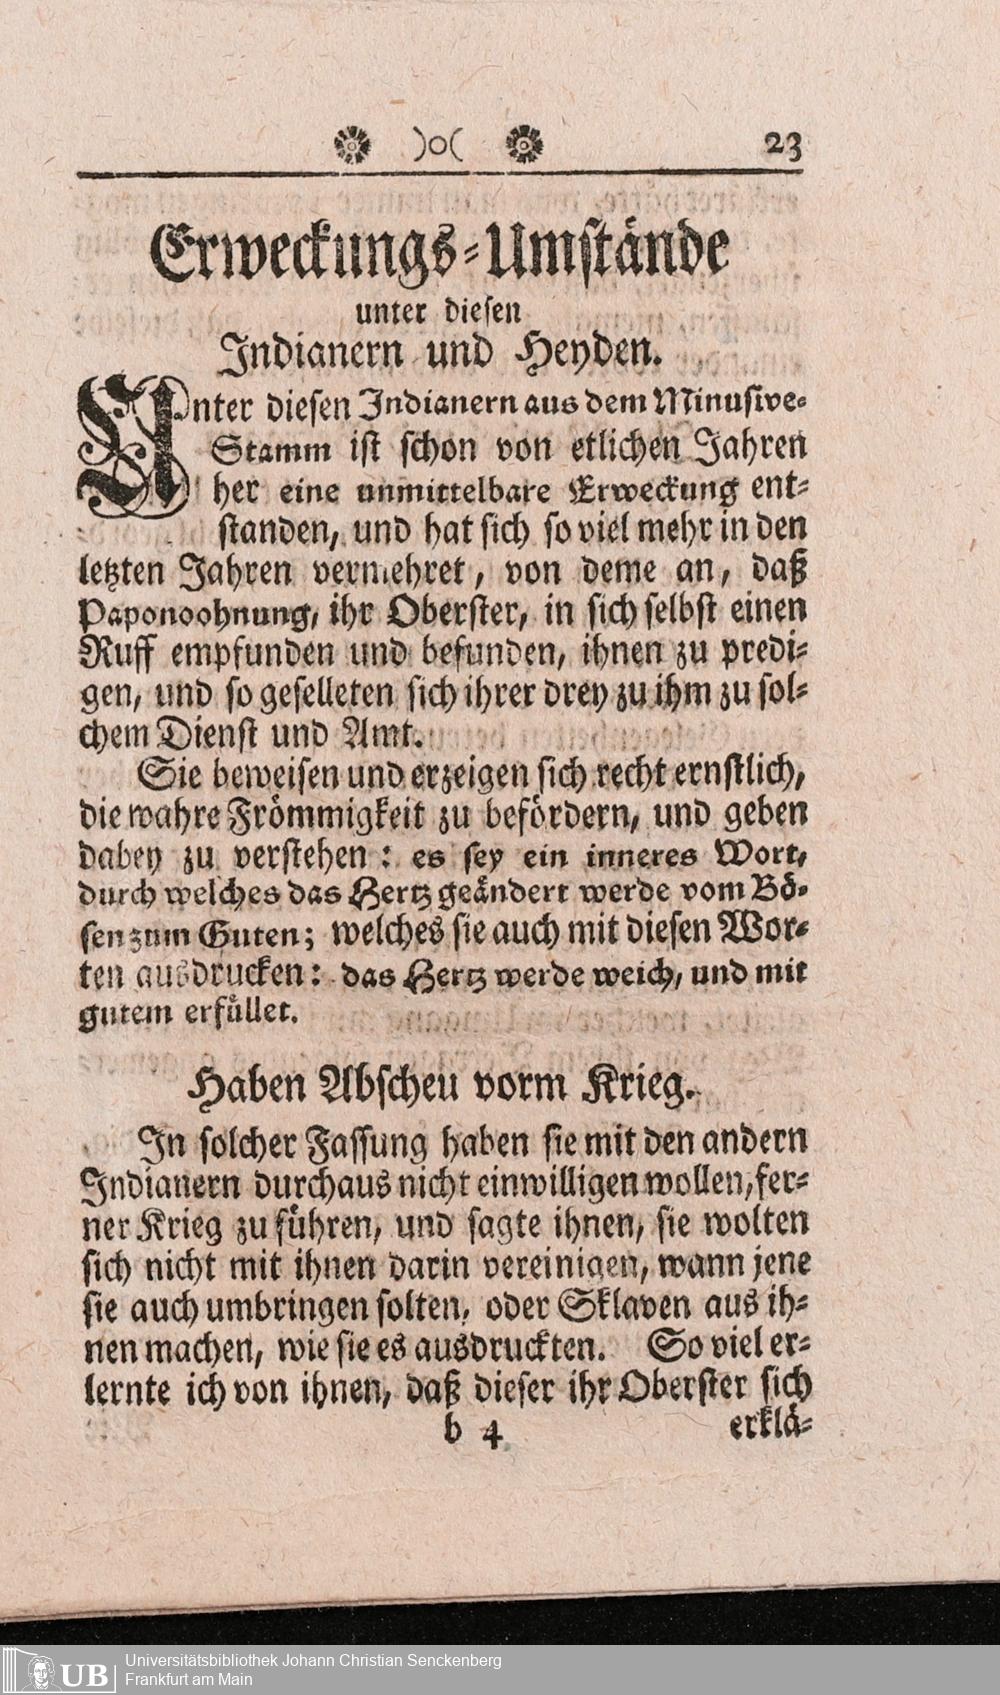 )o( 23
Erweckungs-Umstände
unter diesen
Indianern und Heyden.
Unter diesen Indianern aus dem Minusive-
Stamm ist schon von etlichen Jahren
her eine unmittelbare Erweckung ent-
standen, und hat sich so viel mehr in den
letzten Jahren vermehret, von deme an, daß
Paponoohnung, ihr Oberster, in sich selbst einen
Ruff empfunden und befunden, ihnen zu predi-
gen, und so geselleten sich ihrer drey zu ihm zu sol-
chem Dienst und Amt.
Sie beweisen und erzeigen sich recht ernstlich,
die wahre Frömmigkeit zu befördern, und geben
dabey zu verstehen: es sey ein inneres Wort,
durch welches das Hertz geändert werde vom Bö-
sen zum Guten; welches sie auch mit diesen Wor-
ten ausdrucken: das Hertz werde weich, und mit
gutem erfüllet.
Haben Abscheu vorm Krieg.
In solcher Fassung haben sie mit den andern
Indianern durchaus nicht einwilligen wollen, fer-
ner Krieg zu führen, und sagte ihnen, sie wolten
sich nicht mit ihnen darin vereinigen, wann jene
sie auch umbringen solten, oder Sklaven aus ih-
nen machen, wie sie es ausdruckten. So viel er-
lernte ich von ihnen, daß dieser ihr Oberster sich
b 4 erklä-
UB Universitätsbibliothek Johann Christian Senckenberg
Frankfurt am Main